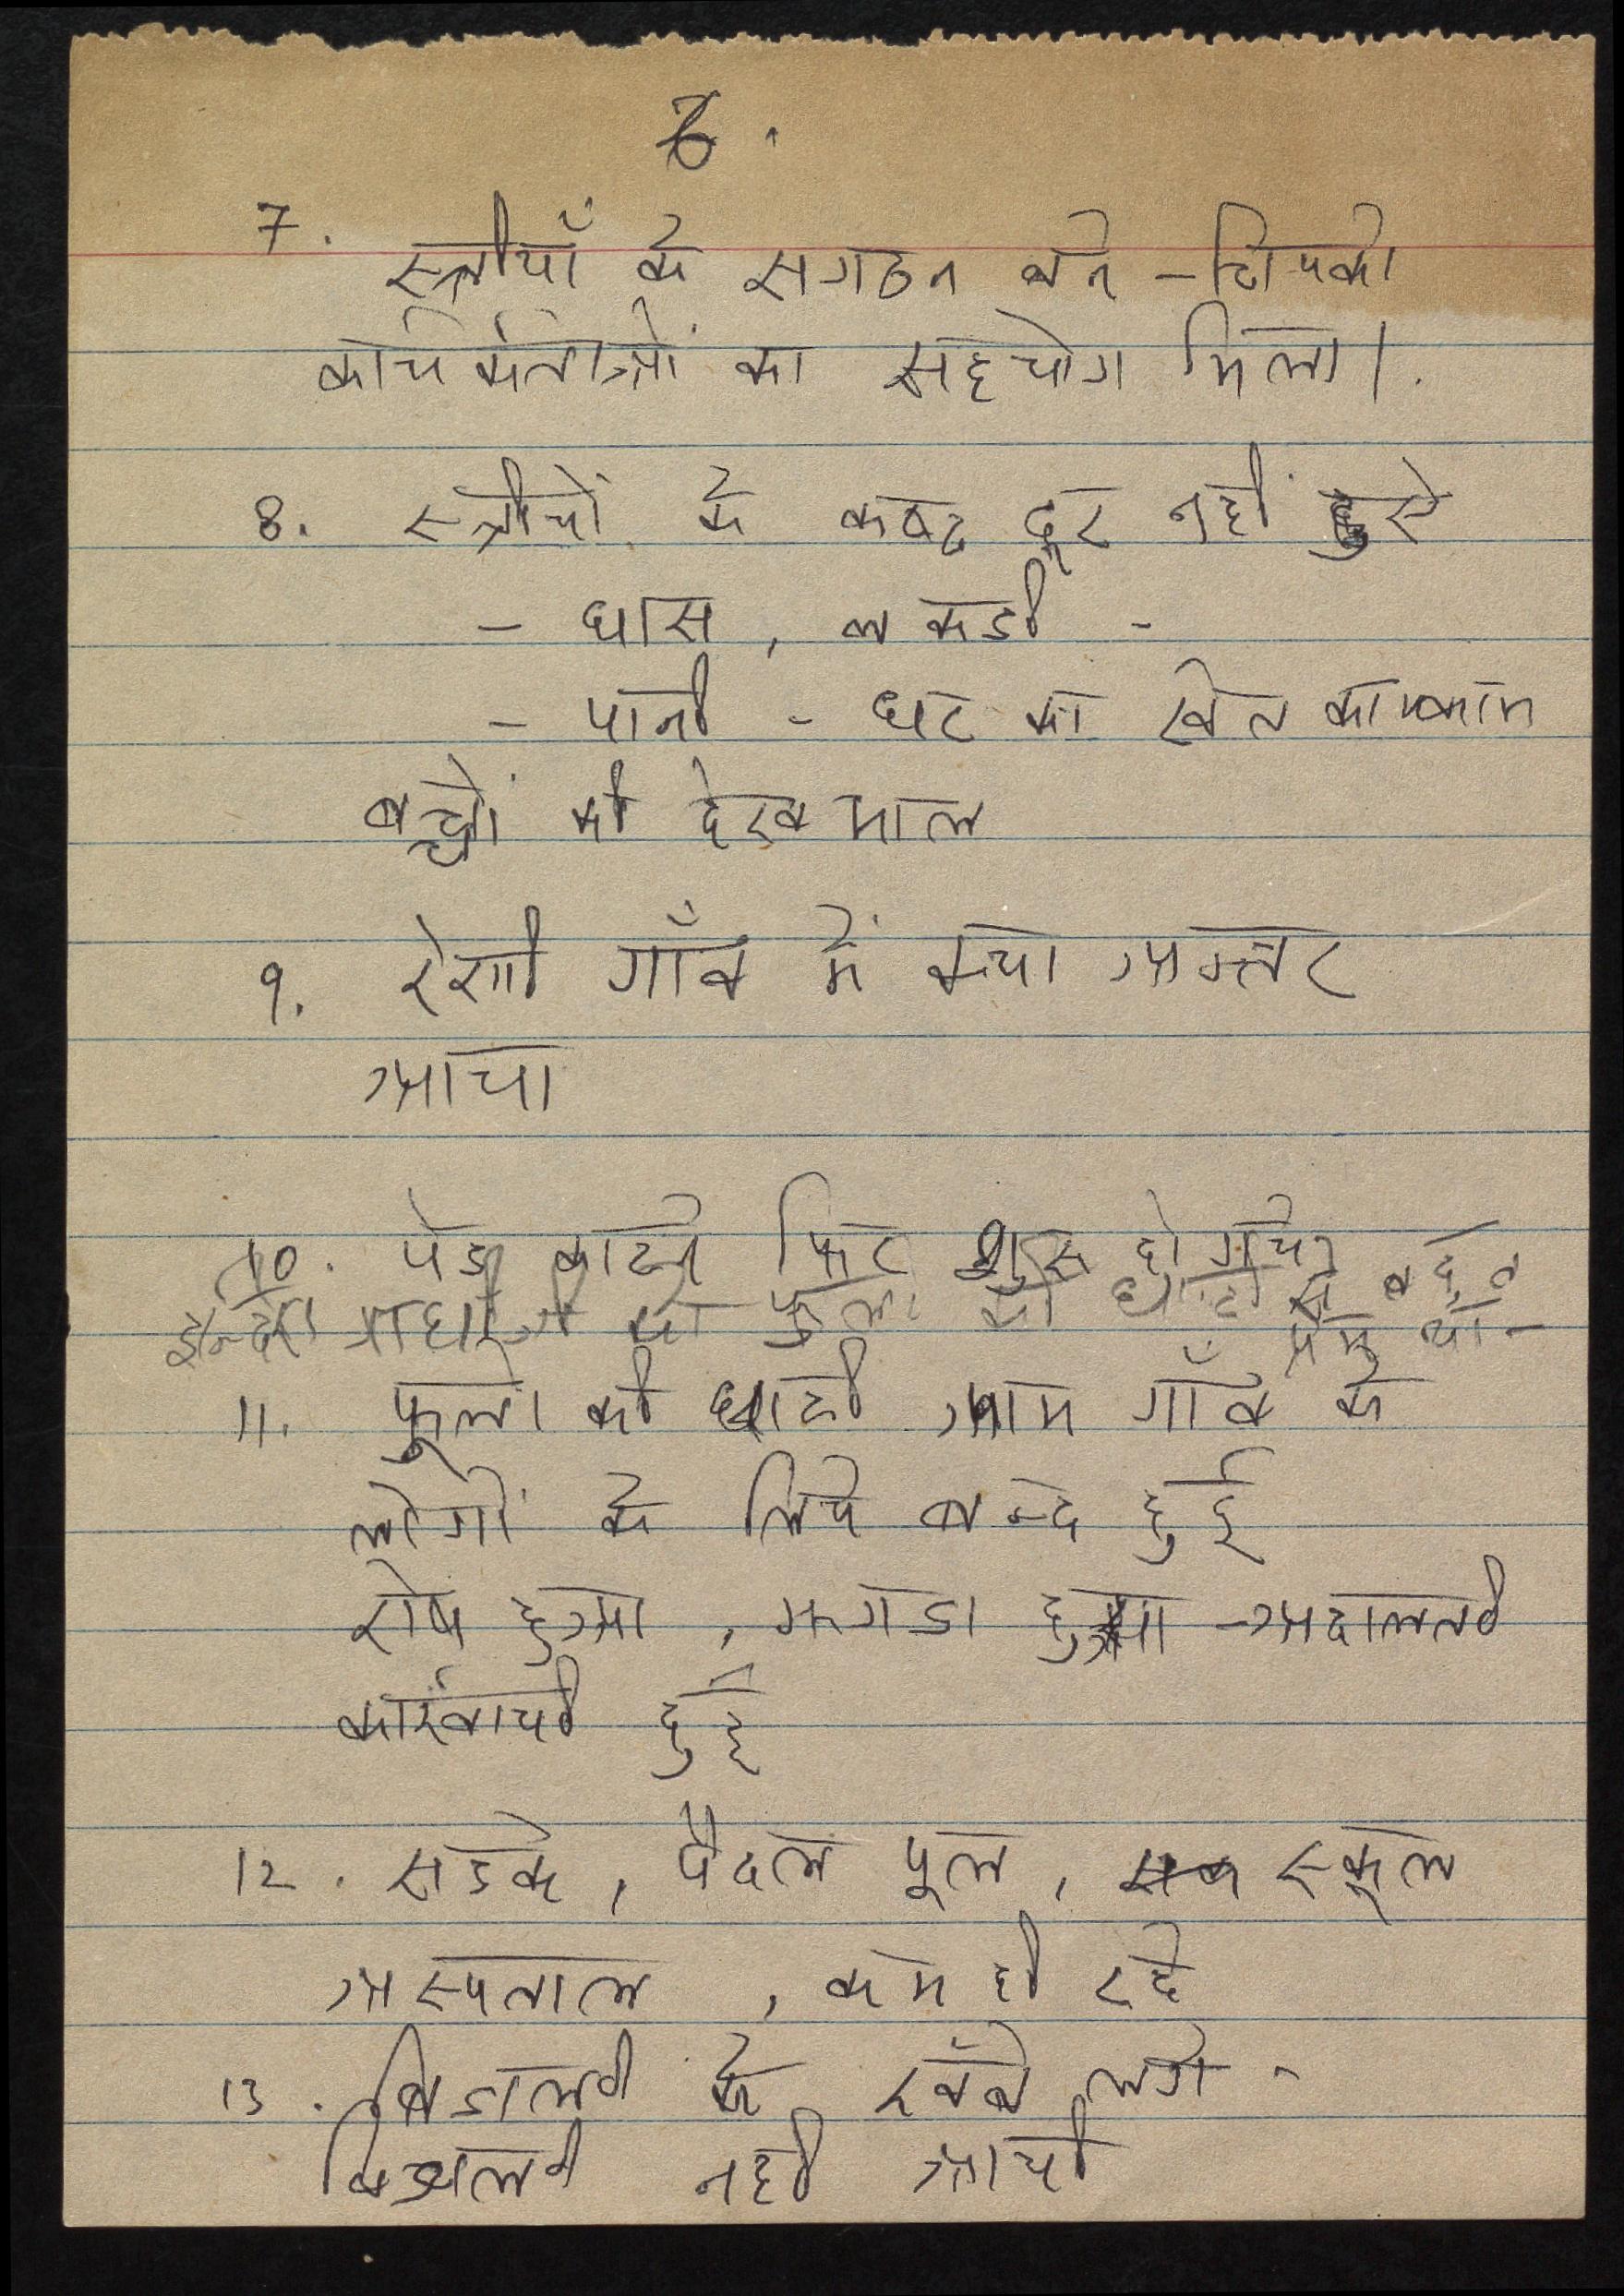 6.
7.
स्त्रीयाँ के सगठन बने - चिपको
कार्यकर्ताओं का सहयोग मिला।
8. स्त्रीयों के कष्ट दूर नहीं हुए
- घास, लकडी -
- पानी - घर का खेत का काम
बच्चों की देखभाल
9. रेणी गाँव में क्या अन्तर
आया
10. पेड काटने फिर शुरू हो गये
इन्दिरा गाधी को फुलो की घाटी से बहुत
प्रेम था -
11. फूलो की घाटी आम गाँव के
लोगों के लिये बन्द हुई
रोष हुआ, झगडा हुआ - अदालती
कार्रवायी हुई
12. सडके, पैदल पूल, स्कूल
अस्पताल, कम ही रहे
13. बिजली के खँबे लगे -
बिजली नही आयी